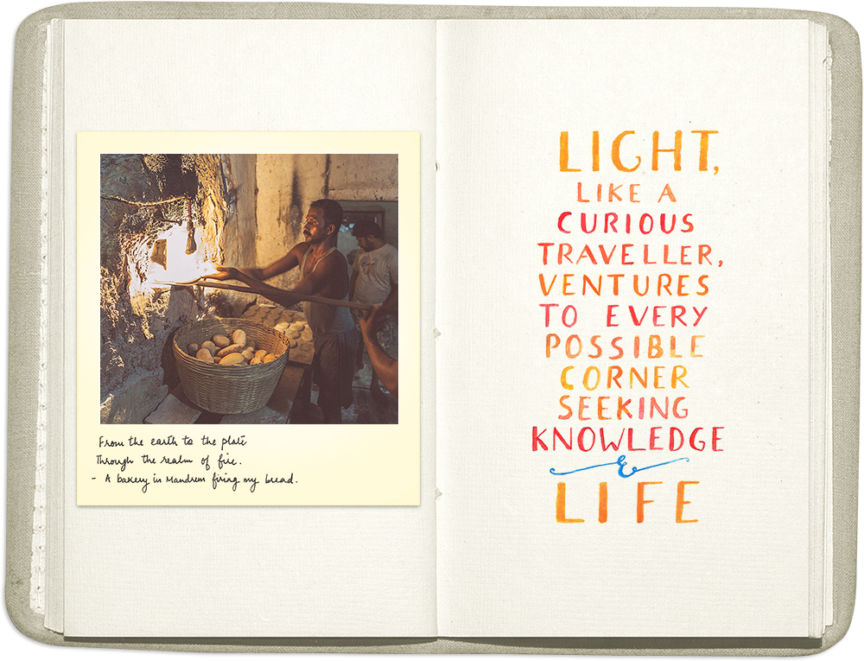 From the earth to the plate
Through the realm of fire.
- A bakery in Mandrem firing my bread.
LIGHT,
LIKE A
CURIOUS
TRAVELLER,
VENTURES
TO EVERY
POSSIBLE
CORNER
SEEKING
KNOWLEDGE
&
LIFE